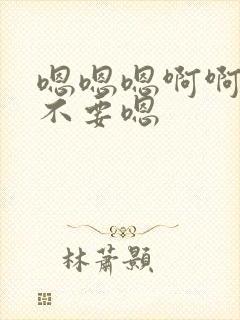 嗯嗯嗯啊啊
不要嗯
林萧颢